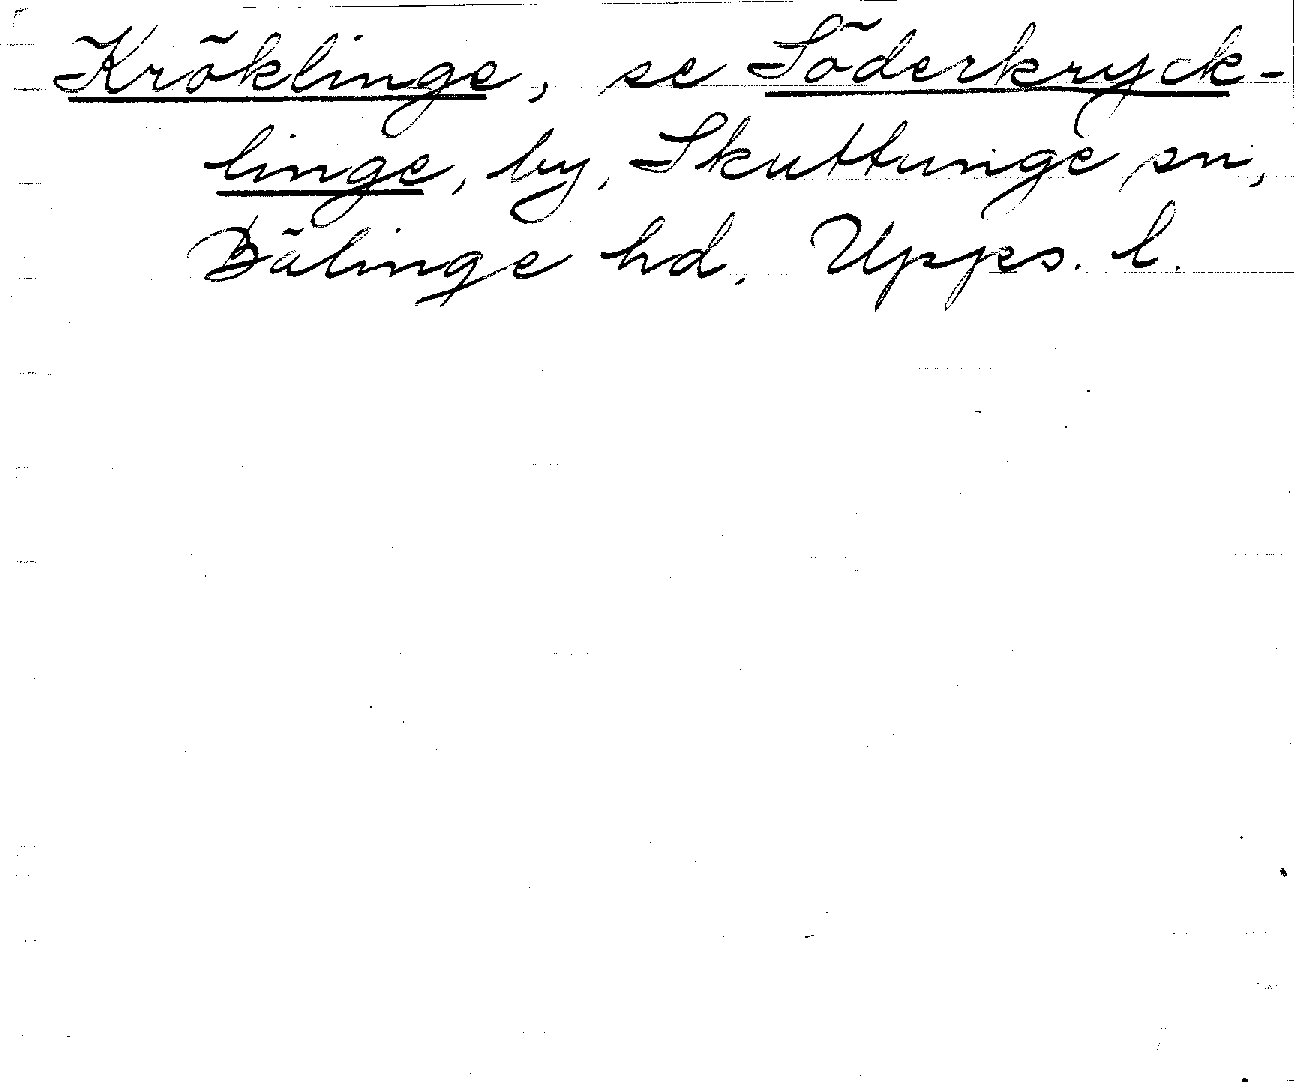 Kröklinge, se Söderkryck-
linge, by, Skuttunge sn,
Bälinge hd, Upps. l.